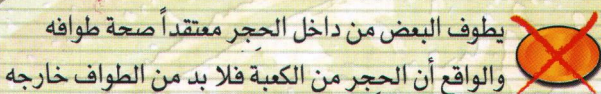 يطوف البعض من داخل الحِجر معتقداً صحة طوافه
والواقع أن الحِجر من الكعبة فلا بد من الطواف خارجه